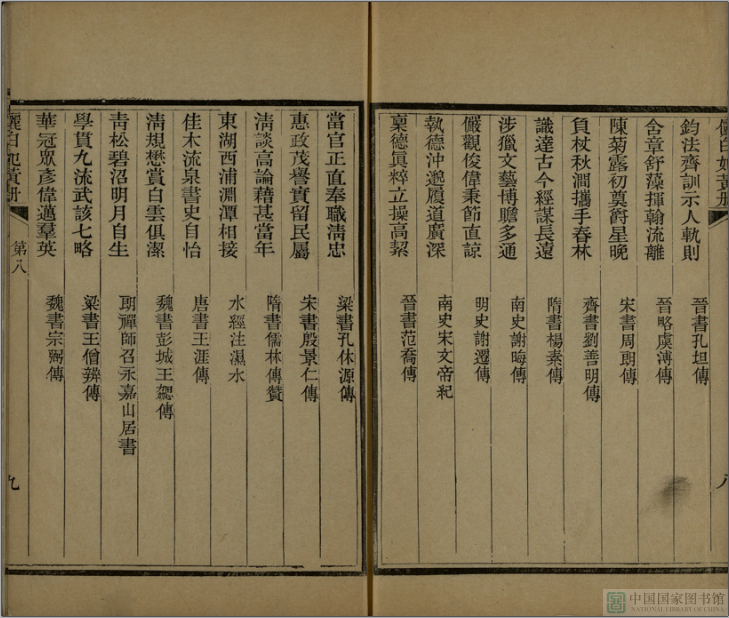 儷白妃黃册
鈞法齊訓示人軌則 晉書孔坦傳
含章舒藻揮翰流離 晉略虞溥傳
陳菊露初奠爵星晚 宋書周朗傳
負杖秋澗攜手春林 齊書劉善明傳
識達古今經謀長遠 隋書楊素傳
涉獵文藝博贍多通 南史謝晦傳
儼觀俊偉秉節直諒 明史謝遷傳
執德沖邈履道廣深 南史宋文帝紀
稟德眞粹立操高絜 晉書范喬傳
八
當官正直奉職淸忠 梁書孔休源傳
惠政茂譽實留民屬 宋書殷景仁傳
淸談高論藉甚當年 隋書儒林傳贊
東湖西浦淵潭相接 水經注㶟水
佳木流泉書史自怡 唐書王涯傳
淸規懋賞白雲俱潔 魏書彭城王勰傳
靑松碧沼明月自生 朗禪師召永嘉山居書
學貫九流武該七略 梁書王僧辨傳
華冠眾彥偉邁羣英 魏書宗欽傳
儷白妃黃册 第八
九
中国国家图书馆
NATIONAL LIBRARY OF CHINA